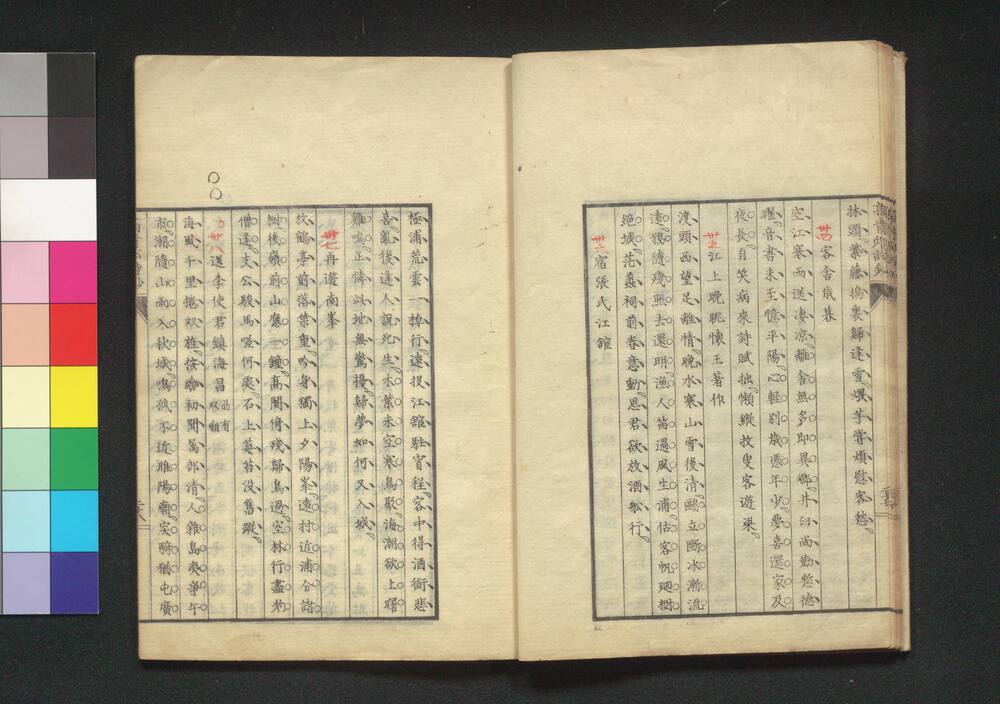 牀頭縈藤塢裏歸逢雪煨芋嘗煩慰客愁
卅四 客舍歲暮
空江寒雨送淒凉離舍無多即異鄉井臼尚勤慙德
曜音書未至憶平陽心輕別歲憑年少夢喜還家及
夜長自笑病來詩賦拙懶縱枚叟客遊梁
卅五 江上晚眺懷王著作
渡頭西望足離情晚水寒山雪後清鷗立斷冰漸流
遠鴉隨殘照去還明漁人笛過風生浦估客帆廻樹
絕城茫蠡祠前春意動思君欲放酒船行
卅六 宿張氏江館
極浦荒雲一棹行遠投江館駐宵程客中得酒銜悲
喜亂後逢人說死生木葉未空寒鳥聚海潮欲上曙
雞鳴正憐此地無驚擾歸夢如何又入城
卅七 再遊南峯
放鶴亭前落葉重吟身獨上夕陽峯遠村近浦分諸
樹後嶺前山應一鐘高閣倚殘歸鳥過空林行盡老
僧逢支公駿馬嗟何處石上莓苔沒舊蹤
卅八 送李使君鎮海昌 邑有双廟
海風千里捲双旌按轡初聞属部清人雜島夷爭午
市潮隨山雨入秋城鳴弦不近雎陽廟突騎猶屯廣